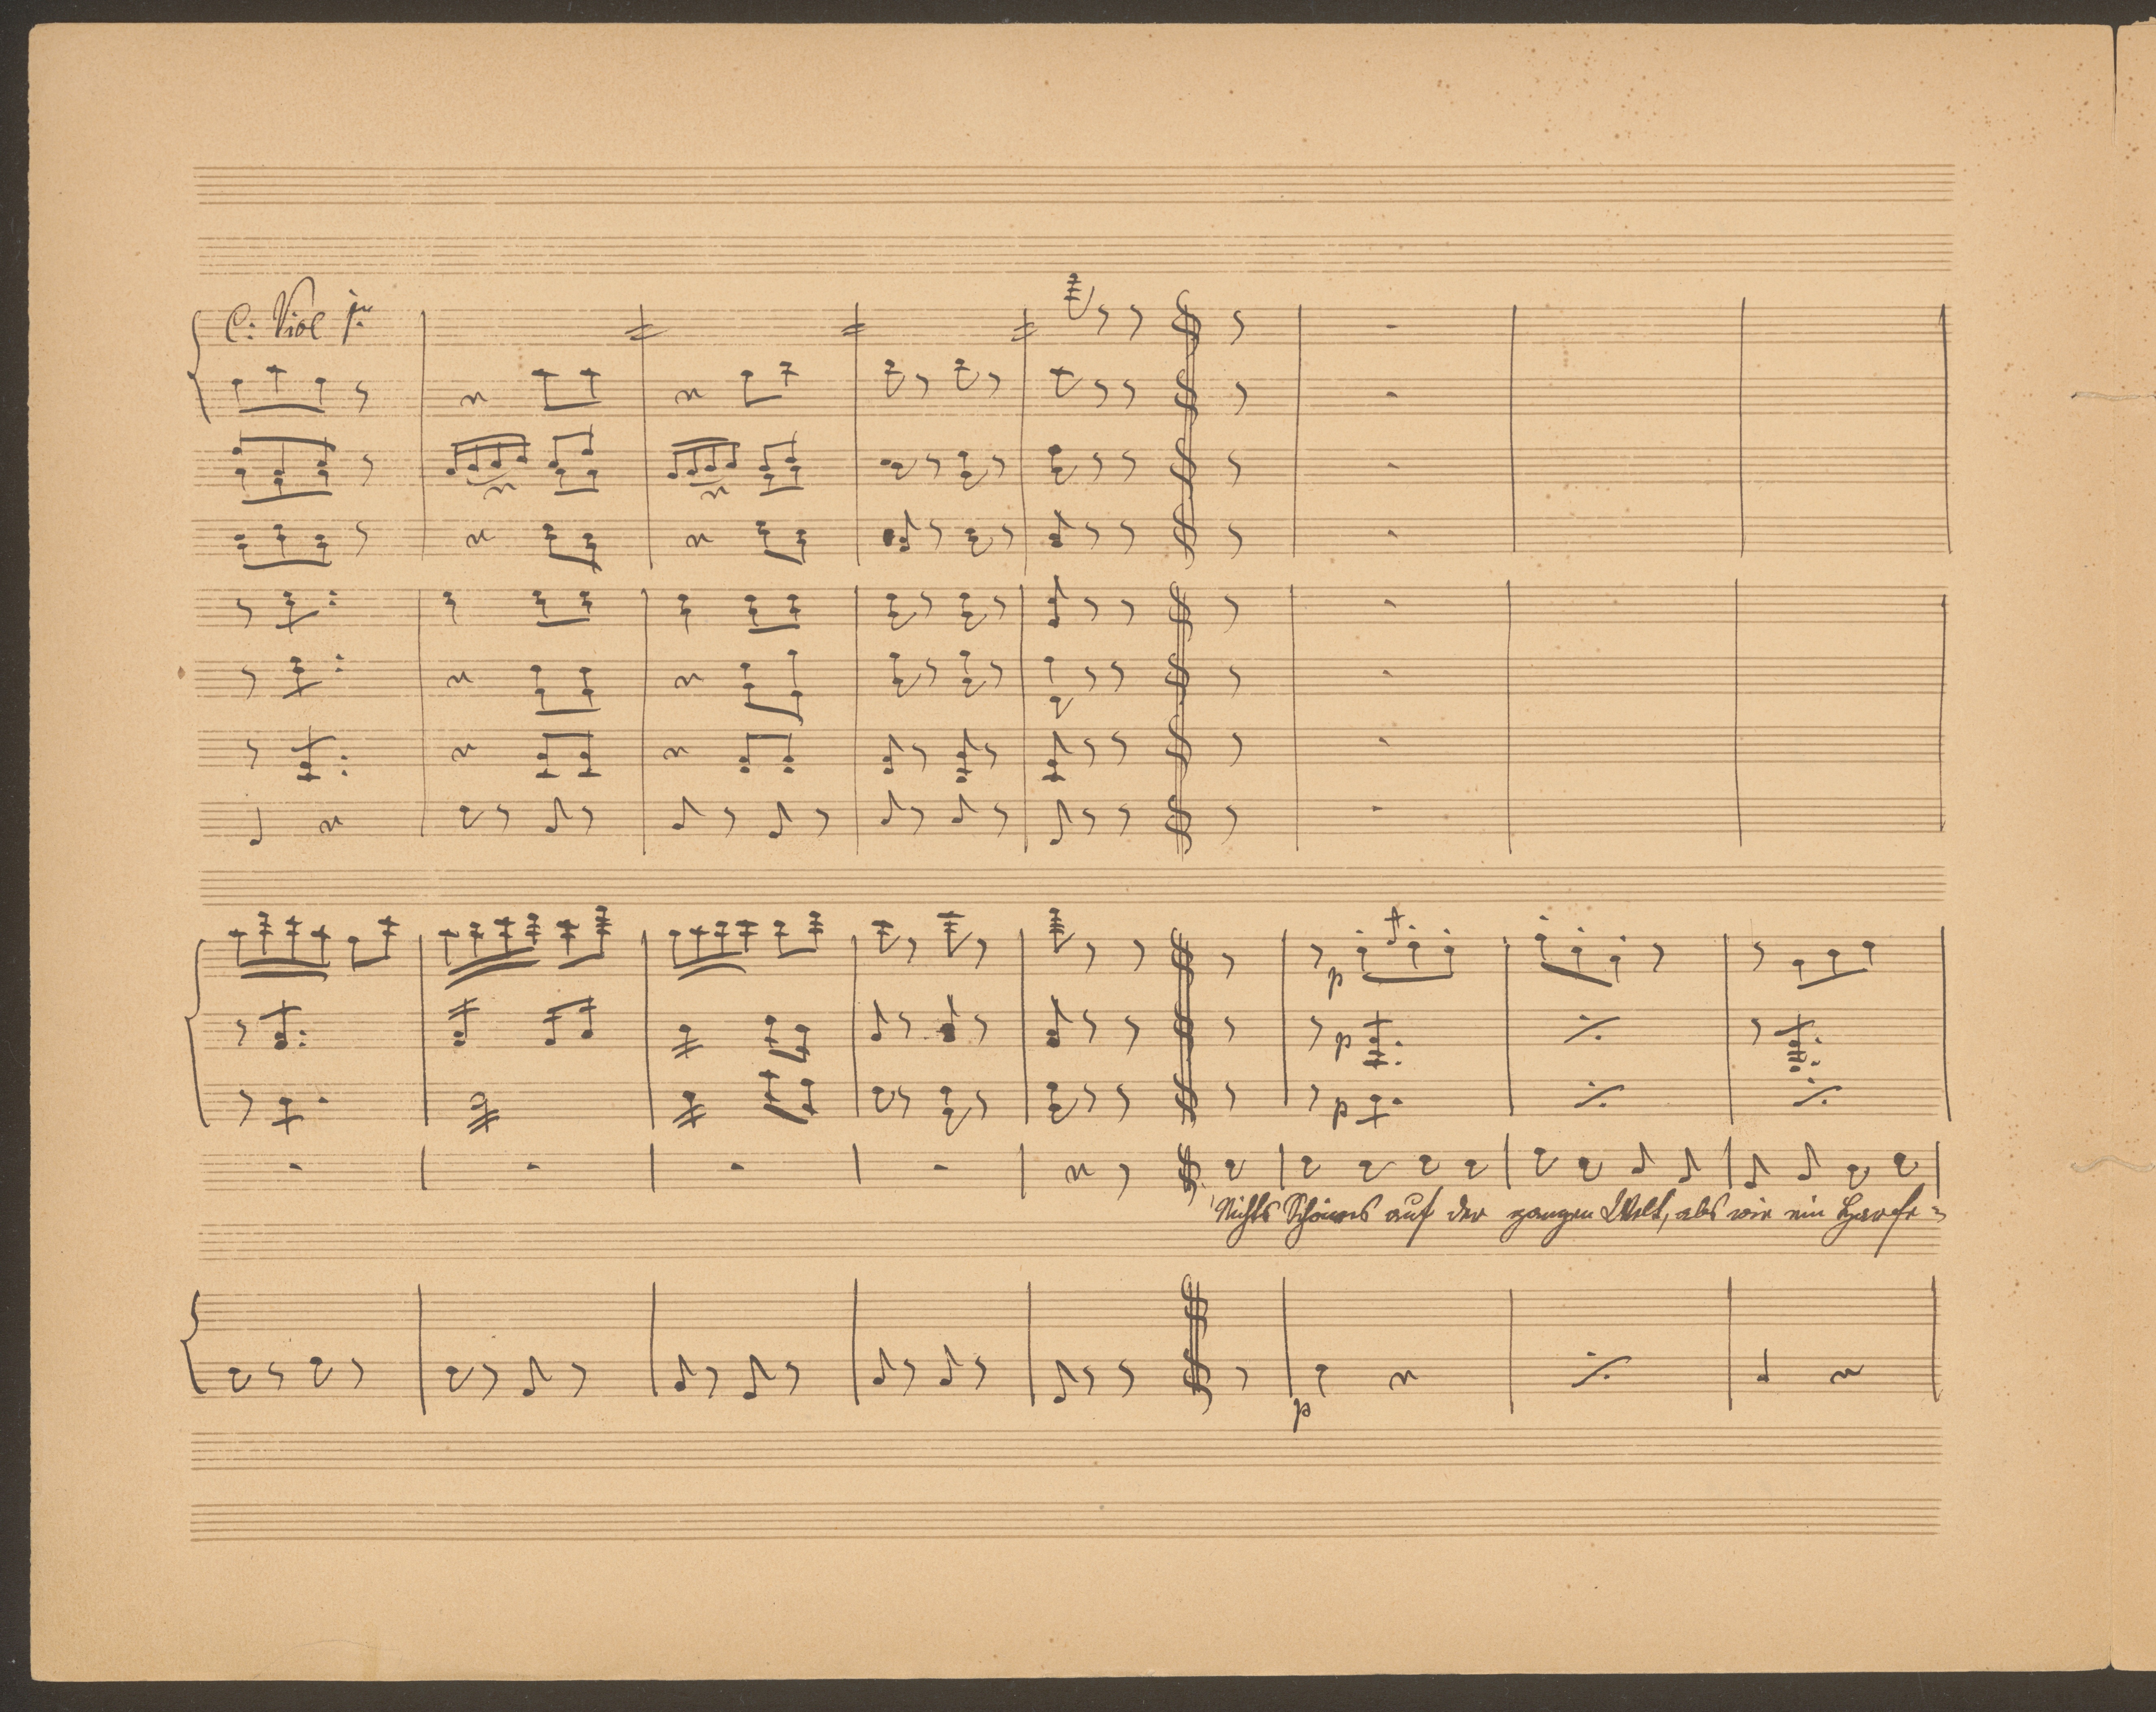 C: Viol 1mo
p
p
p
Nichts Schöners auf der ganzen Welt, als wie ein Harfe=
p